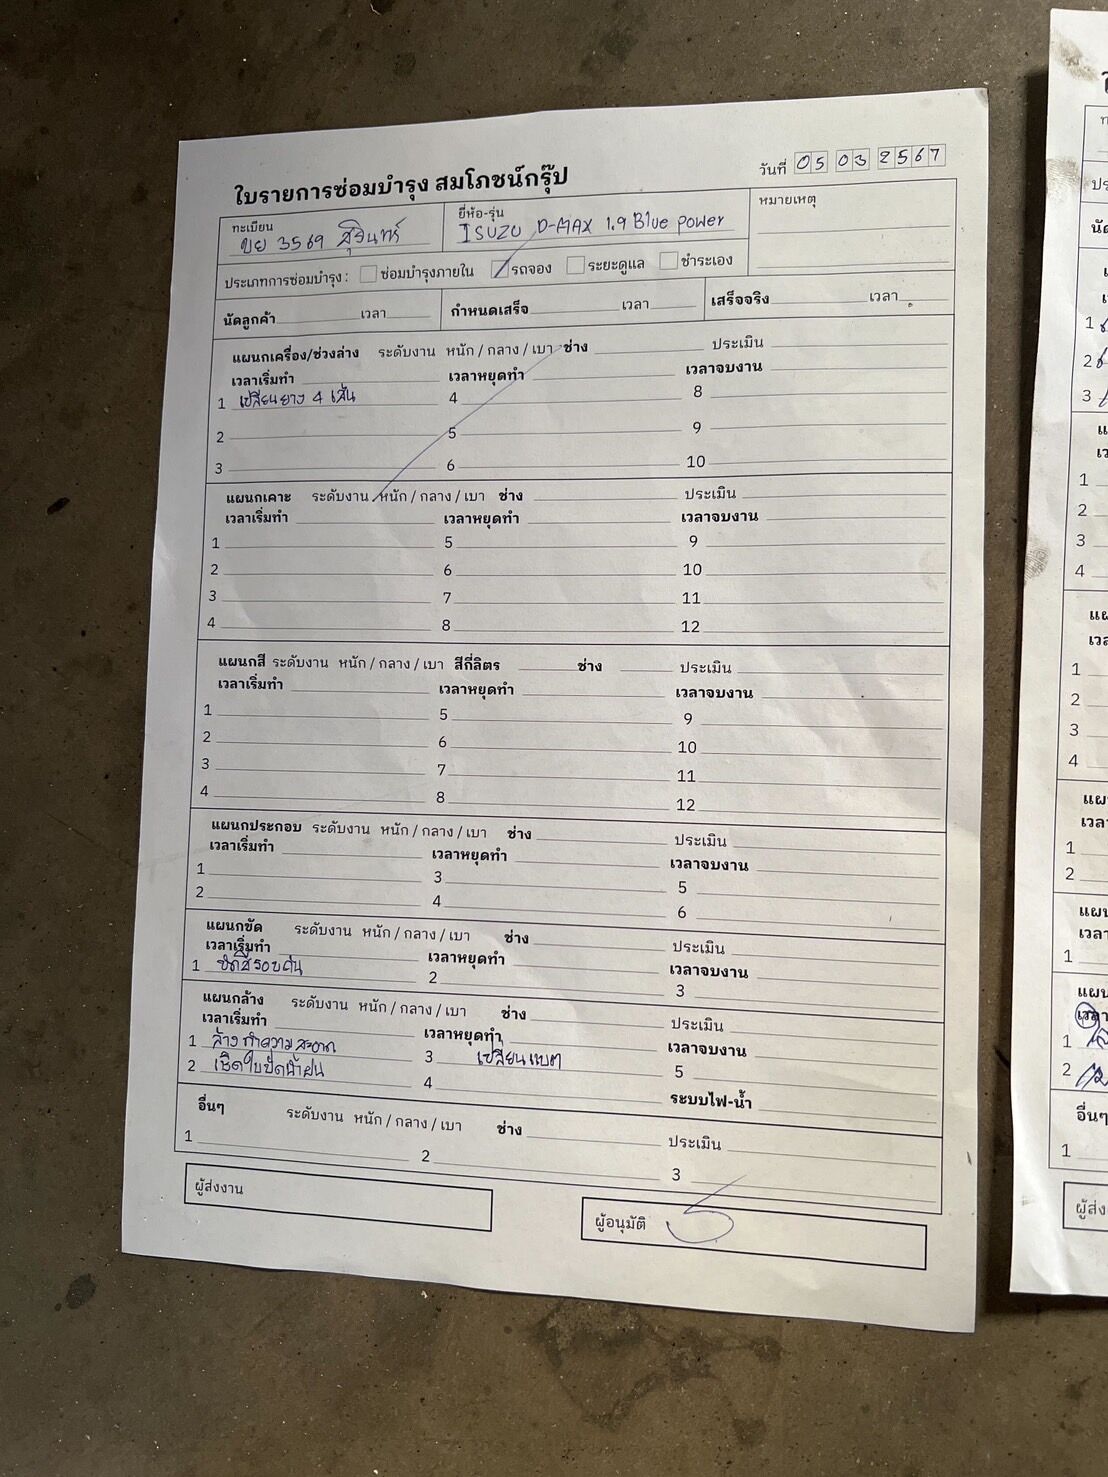 ใบรายการซ่อมบำรุง สมโภชน์กรุ๊ป
วันที่ 05 03 2567
ทะเบียน ขย 3569 สุรินทร์
ยี่ห้อ-รุ่น ISUZU D-MAX 1.9 Blue power
หมายเหตุ
ประเภทการซ่อมบำรุง : ซ่อมบำรุงภายใน รถจอง ระยะดูแล ชำระเอง
นัดลูกค้า เวลา กำหนดเสร็จ เวลา เสร็จจริง เวลา
แผนกเครื่อง/ช่วงล่าง ระดับงาน หนัก / กลาง / เบา ช่าง ประเมิน
เวลาเริ่มทำ เวลาหยุดทำ เวลาจบงาน
1 เปลี่ยนยาง 4 เส้น 4 8
2 5 9
3 6 10
แผนกเคาะ ระดับงาน หนัก / กลาง / เบา ช่าง ประเมิน
เวลาเริ่มทำ เวลาหยุดทำ เวลาจบงาน
1 5 9
2 6 10
3 7 11
4 8 12
แผนกสี ระดับงาน หนัก / กลาง / เบา สีกี่ลิตร ช่าง ประเมิน
เวลาเริ่มทำ เวลาหยุดทำ เวลาจบงาน
1 5 9
2 6 10
3 7 11
4 8 12
แผนกประกอบ ระดับงาน หนัก / กลาง / เบา ช่าง ประเมิน
เวลาเริ่มทำ เวลาหยุดทำ เวลาจบงาน
1 3 5
2 4 6
แผนกขัด ระดับงาน หนัก / กลาง / เบา ช่าง ประเมิน
เวลาเริ่มทำ เวลาหยุดทำ เวลาจบงาน
1 ขัดสีรอบคัน 2 3
แผนกล้าง ระดับงาน หนัก / กลาง / เบา ช่าง ประเมิน
เวลาเริ่มทำ เวลาหยุดทำ เวลาจบงาน
1 ล้างทำความสะอาด 3 เปลี่ยนแบต 5
2 เช็คใบปัดน้ำฝน 4 ระบบไฟ-น้ำ
อื่นๆ ระดับงาน หนัก / กลาง / เบา ช่าง ประเมิน
1 2 3
ผู้ส่งงาน
ผู้อนุมัติ